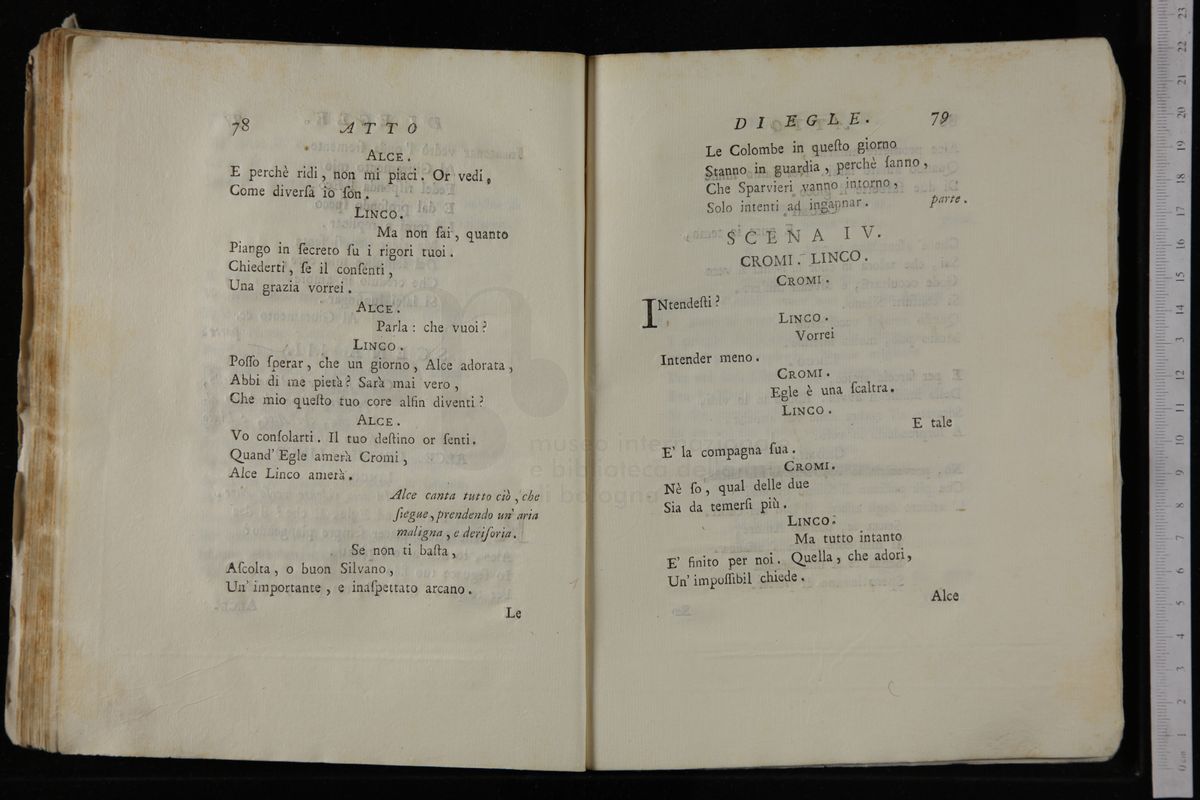 78 ATTO
ALCE.
E perchè ridi, non mi piaci. Or vedi,
Come diverſa io ſon.
LINCO.
Ma non ſai, quanto
Piango in ſecreto ſu i rigori tuoi.
Chiederti, ſe il conſenti,
Una grazia vorrei.
ALCE.
Parla: che vuoi?
LINCO.
Poſſo ſperar, che un giorno, Alce adorata,
Abbi di me pietà? Sarà mai vero,
Che mio queſto tuo core alfin diventi?
ALCE.
Vo conſolarti. Il tuo deſtino or ſenti.
Quand' Egle amerà Cromi,
Alce Linco amerà.
Alce canta tutto ciò, che
ſiegue, prendendo un' aria
maligna, e deriſoria.
Se non ti baſta,
Aſcolta, o buon Silvano,
Un' importante, e inaſpettato arcano.
Le
DI EGLE. 79
Le Colombe in queſto giorno
Stanno in guardia, perchè ſanno,
Che Sparvieri vanno intorno,
Solo intenti ad ingannar. parte.
SCENA IV.
CROMI. LINCO.
CROMI.
INtendeſti?
LINCO.
Vorrei
Intender meno.
CROMI.
Egle è una ſcaltra.
LINCO.
E tale
E' la compagna ſua.
CROMI.
Nè ſo, qual delle due
Sia da temerſi più.
LINCO.
Ma tutto intanto
E' finito per noi. Quella, che adori,
Un' impoſſibil chiede.
Alce
museo internazionale
e biblioteca della musica
di bologna